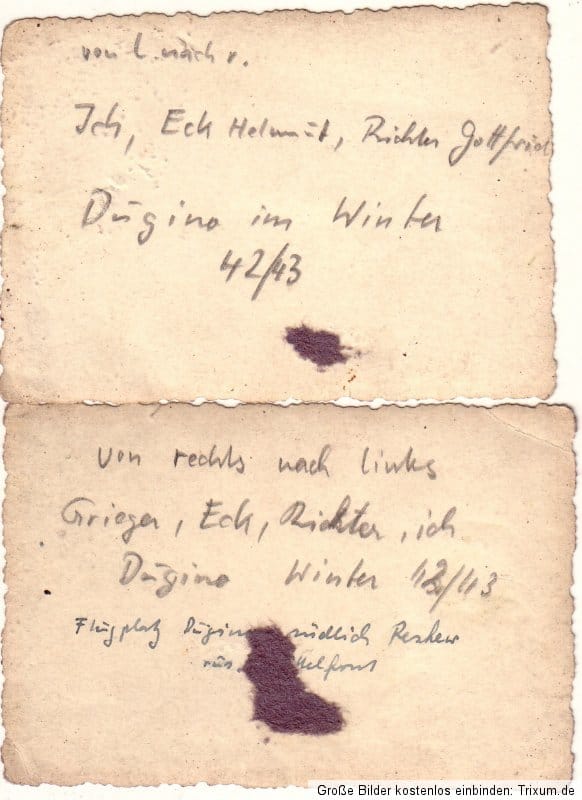 von l. nach r.
Ich, Eck Helmut, Richter Gottfried
Dugino im Winter
42/43
von rechts nach links
Grieger, Eck, Richter, ich
Dugino Winter 42/43
Flugplatz Dugino südlich
Große Bilder kostenlos einbinden: Trixum.de